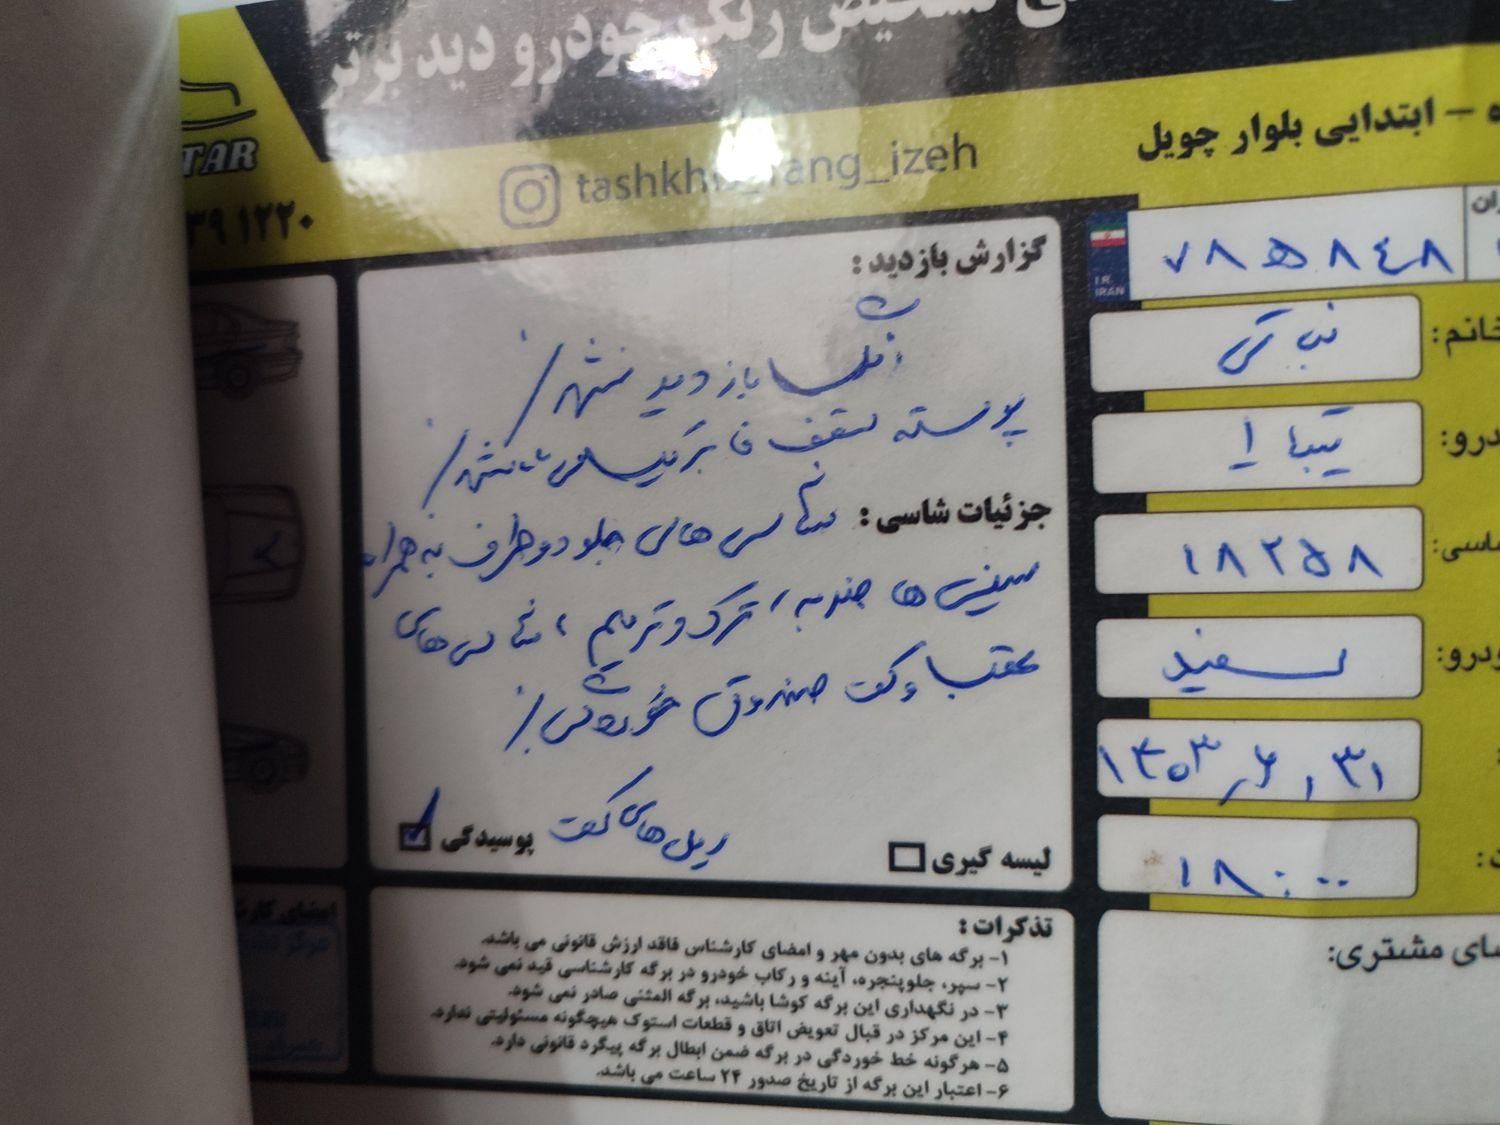 تشخیص رنگ خودرو دید برتر
ه - ابتدایی بلوار چویل
TAR
tashkhis_rang_izeh
۳۹ ۱۲۲۰
گزارش بازدید:
بازدید نشد/
پوسته سقف فابریک
جزئیات شاسی: شاسی های جلو دو طرف به همراه
سینی ها ضربه، ترک و ترمیم، شاسی های
عقب و کف صندوق خوردگی/
لیسه گیری
ریل های کف پوسیدگی
I.R.
IRAN
۷۸ ه ۸۴۸
خانم:
درو: تیبا
اسی: ۱۸۲۵۸
ودرو: سفید
۱۴۰۳/۶/۳۱
۱۸:۰۰
ای مشتری:
تذکرات:
۱- برگه های بدون مهر و امضای کارشناس فاقد ارزش قانونی می باشد.
۲- سپر، جلوپنجره، آینه و رکاب خودرو در برگه کارشناسی قید نمی شود.
۳- در نگهداری این برگه کوشا باشید، برگه المثنی صادر نمی شود.
۴- این مرکز در قبال تعویض اتاق و قطعات استوک هیچگونه مسئولیتی ندارد.
۵- هرگونه خط خوردگی در برگه ضمن ابطال برگه پیگرد قانونی دارد.
۶- اعتبار این برگه از تاریخ صدور ۲۴ ساعت می باشد.
امضای کارش